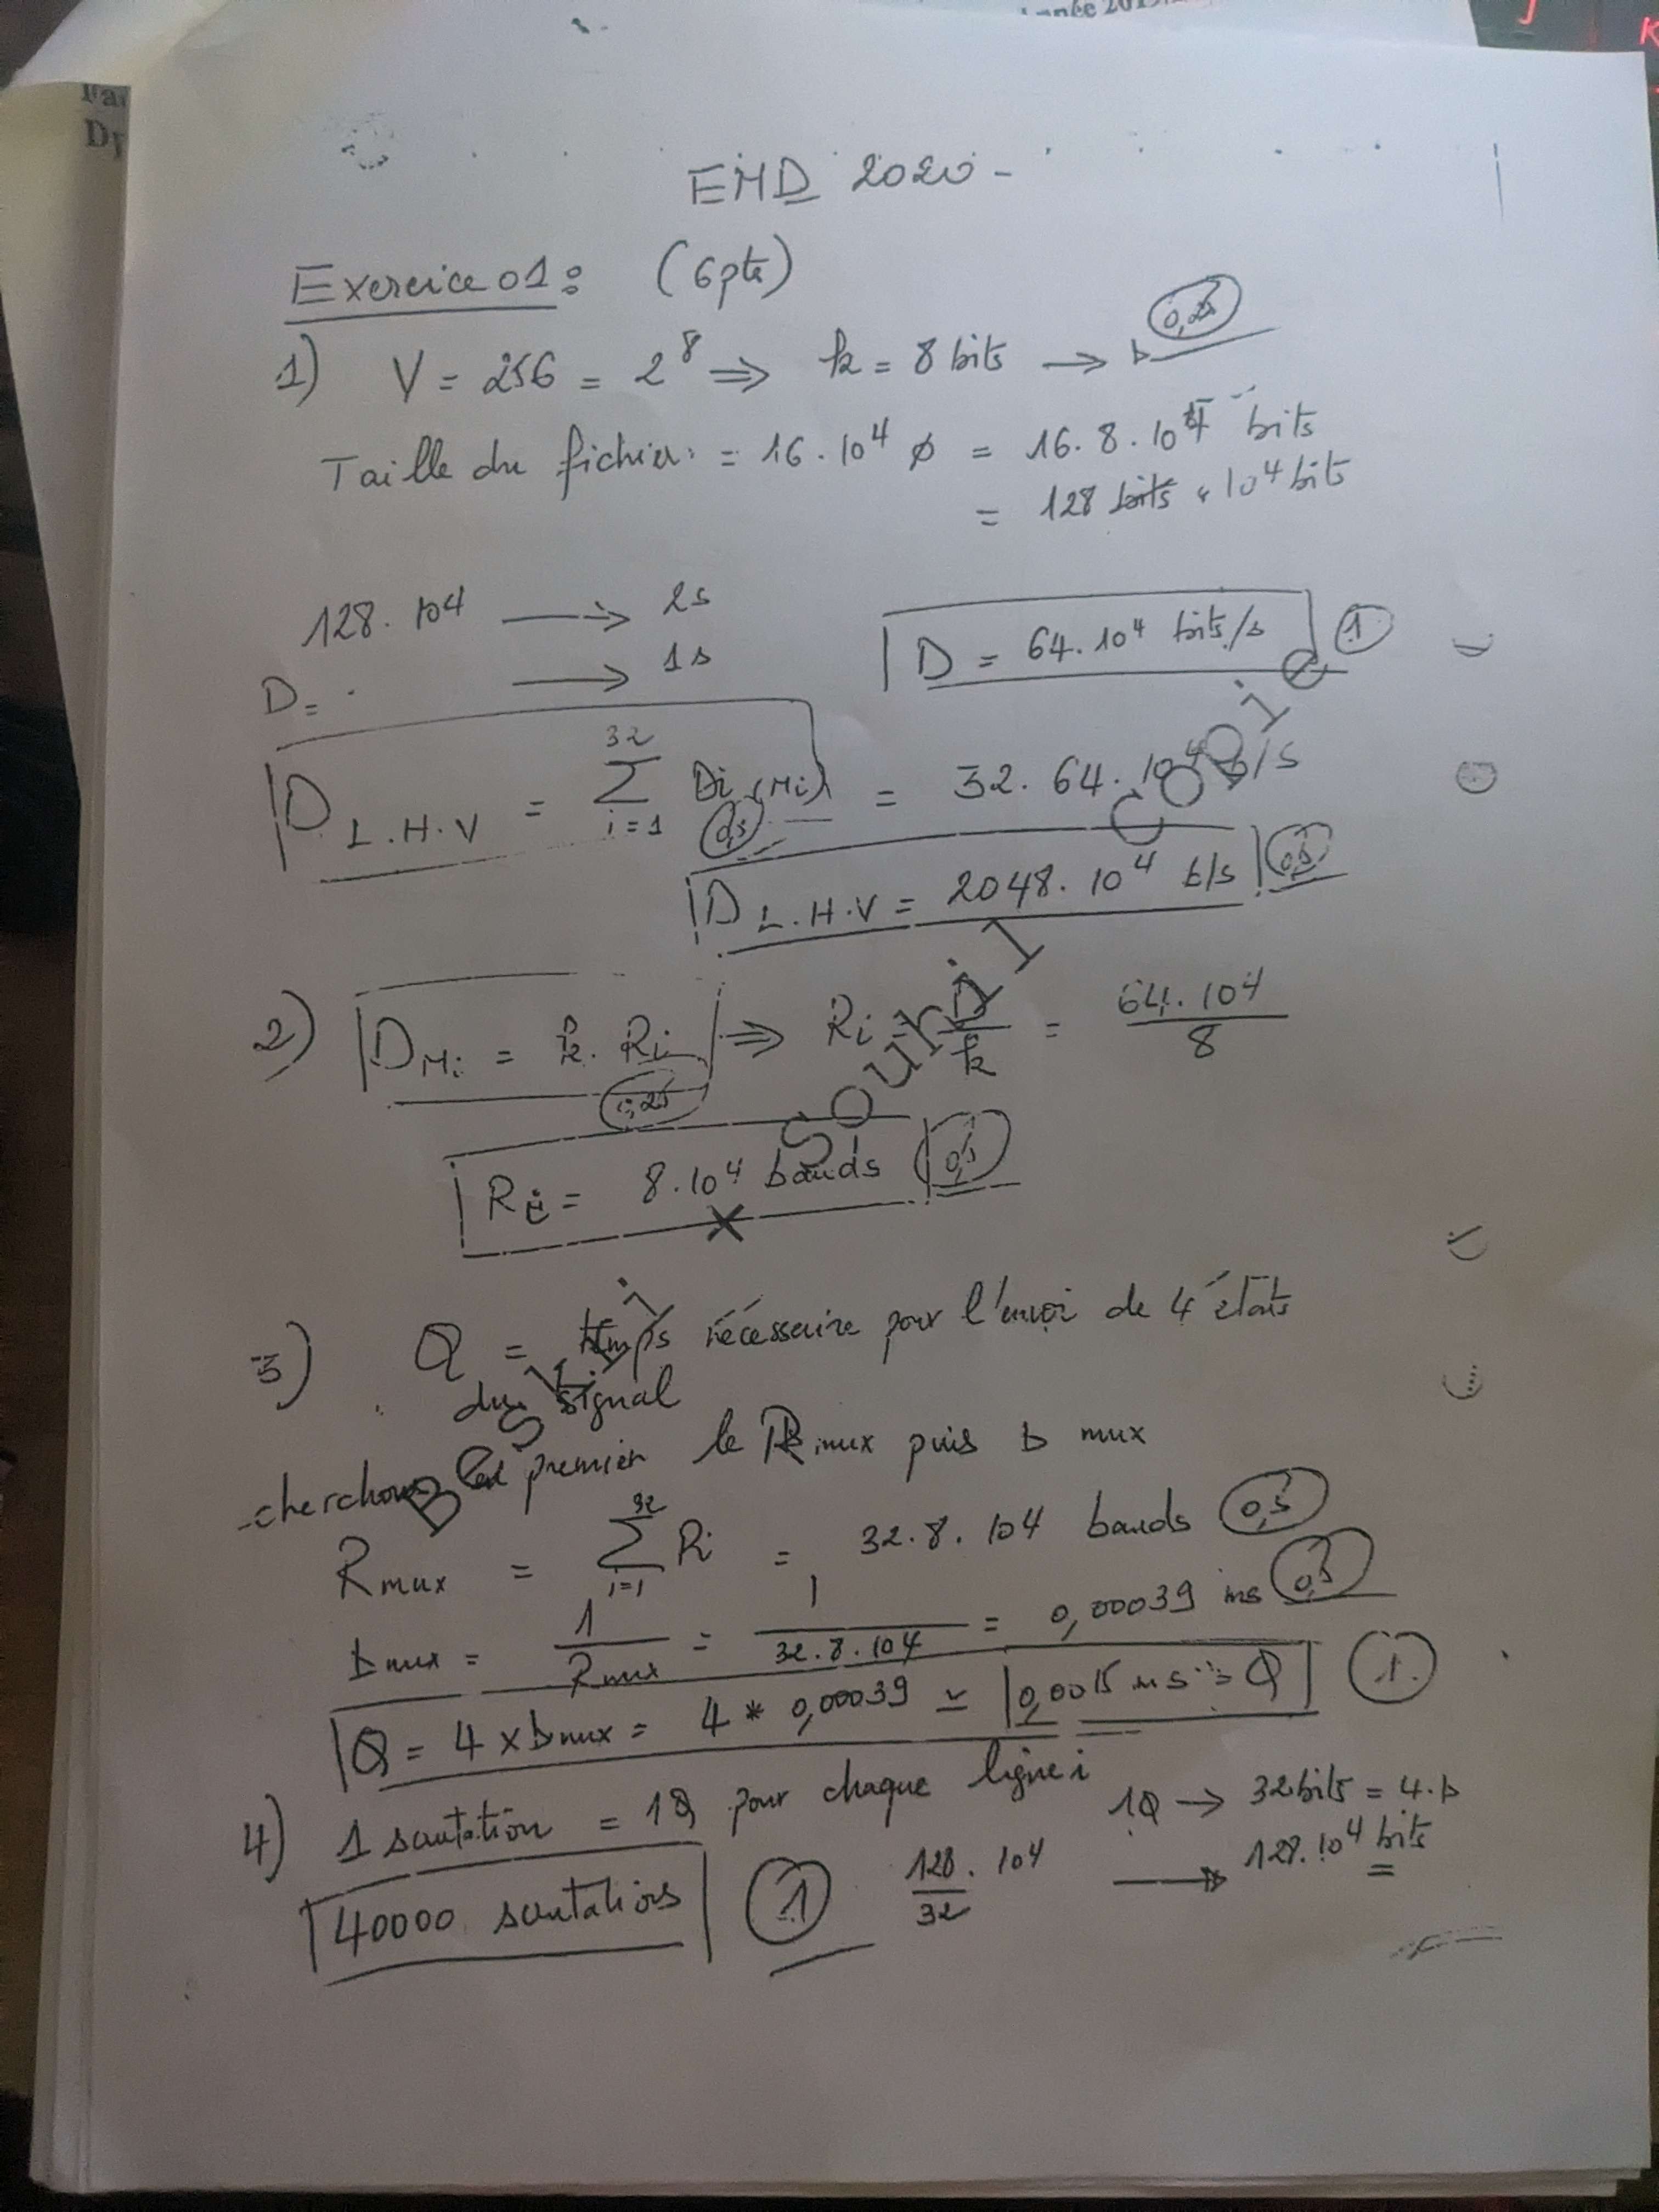 Année 201
Fa
Dp
J
K
EMD 2020 -
Exercice 01 : (6pts)
1) V = 256 = 2^8 ⇒ k = 8 bits → Δ 0,25
Taille du fichier : = 16.10^4 ϕ = 16.8.10^4 bits
= 128 bits * 10^4 bits
128.10^4 → 2s
D = . → 1s
D = 64.10^4 bits/s 1
D L.H.V = Σ_{i=1}^{32} Di (Mi) = 32.64.10^4 b/s
0,5
D L.H.V = 2048.10^4 b/s 0,5
2) D_Mi = k. Ri ⇒ Ri = D/k = 64.10^4/8
0,25
Ri = 8.10^4 bauds 0,5
3) Q = temps nécessaire pour l'envoi de 4 états
du signal
cherchons en premier le Rmux puis Δ mux
Rmux = Σ_{i=1}^{32} Ri = 32.8.10^4 bauds 0,5
Δmux = 1/Rmux = 1/32.8.10^4 = 0,00039 ms 0,5
Q = 4 x Δmux = 4 * 0,00039 ≃ 0,0015 ms = Q 1
4) 1 scutation = 1Q pour chaque ligne i
1Q → 32 bits = 4.Δ
40000 scutations 1
128.10^4/32 → 128.10^4 bits
Beskri Souhail Copie